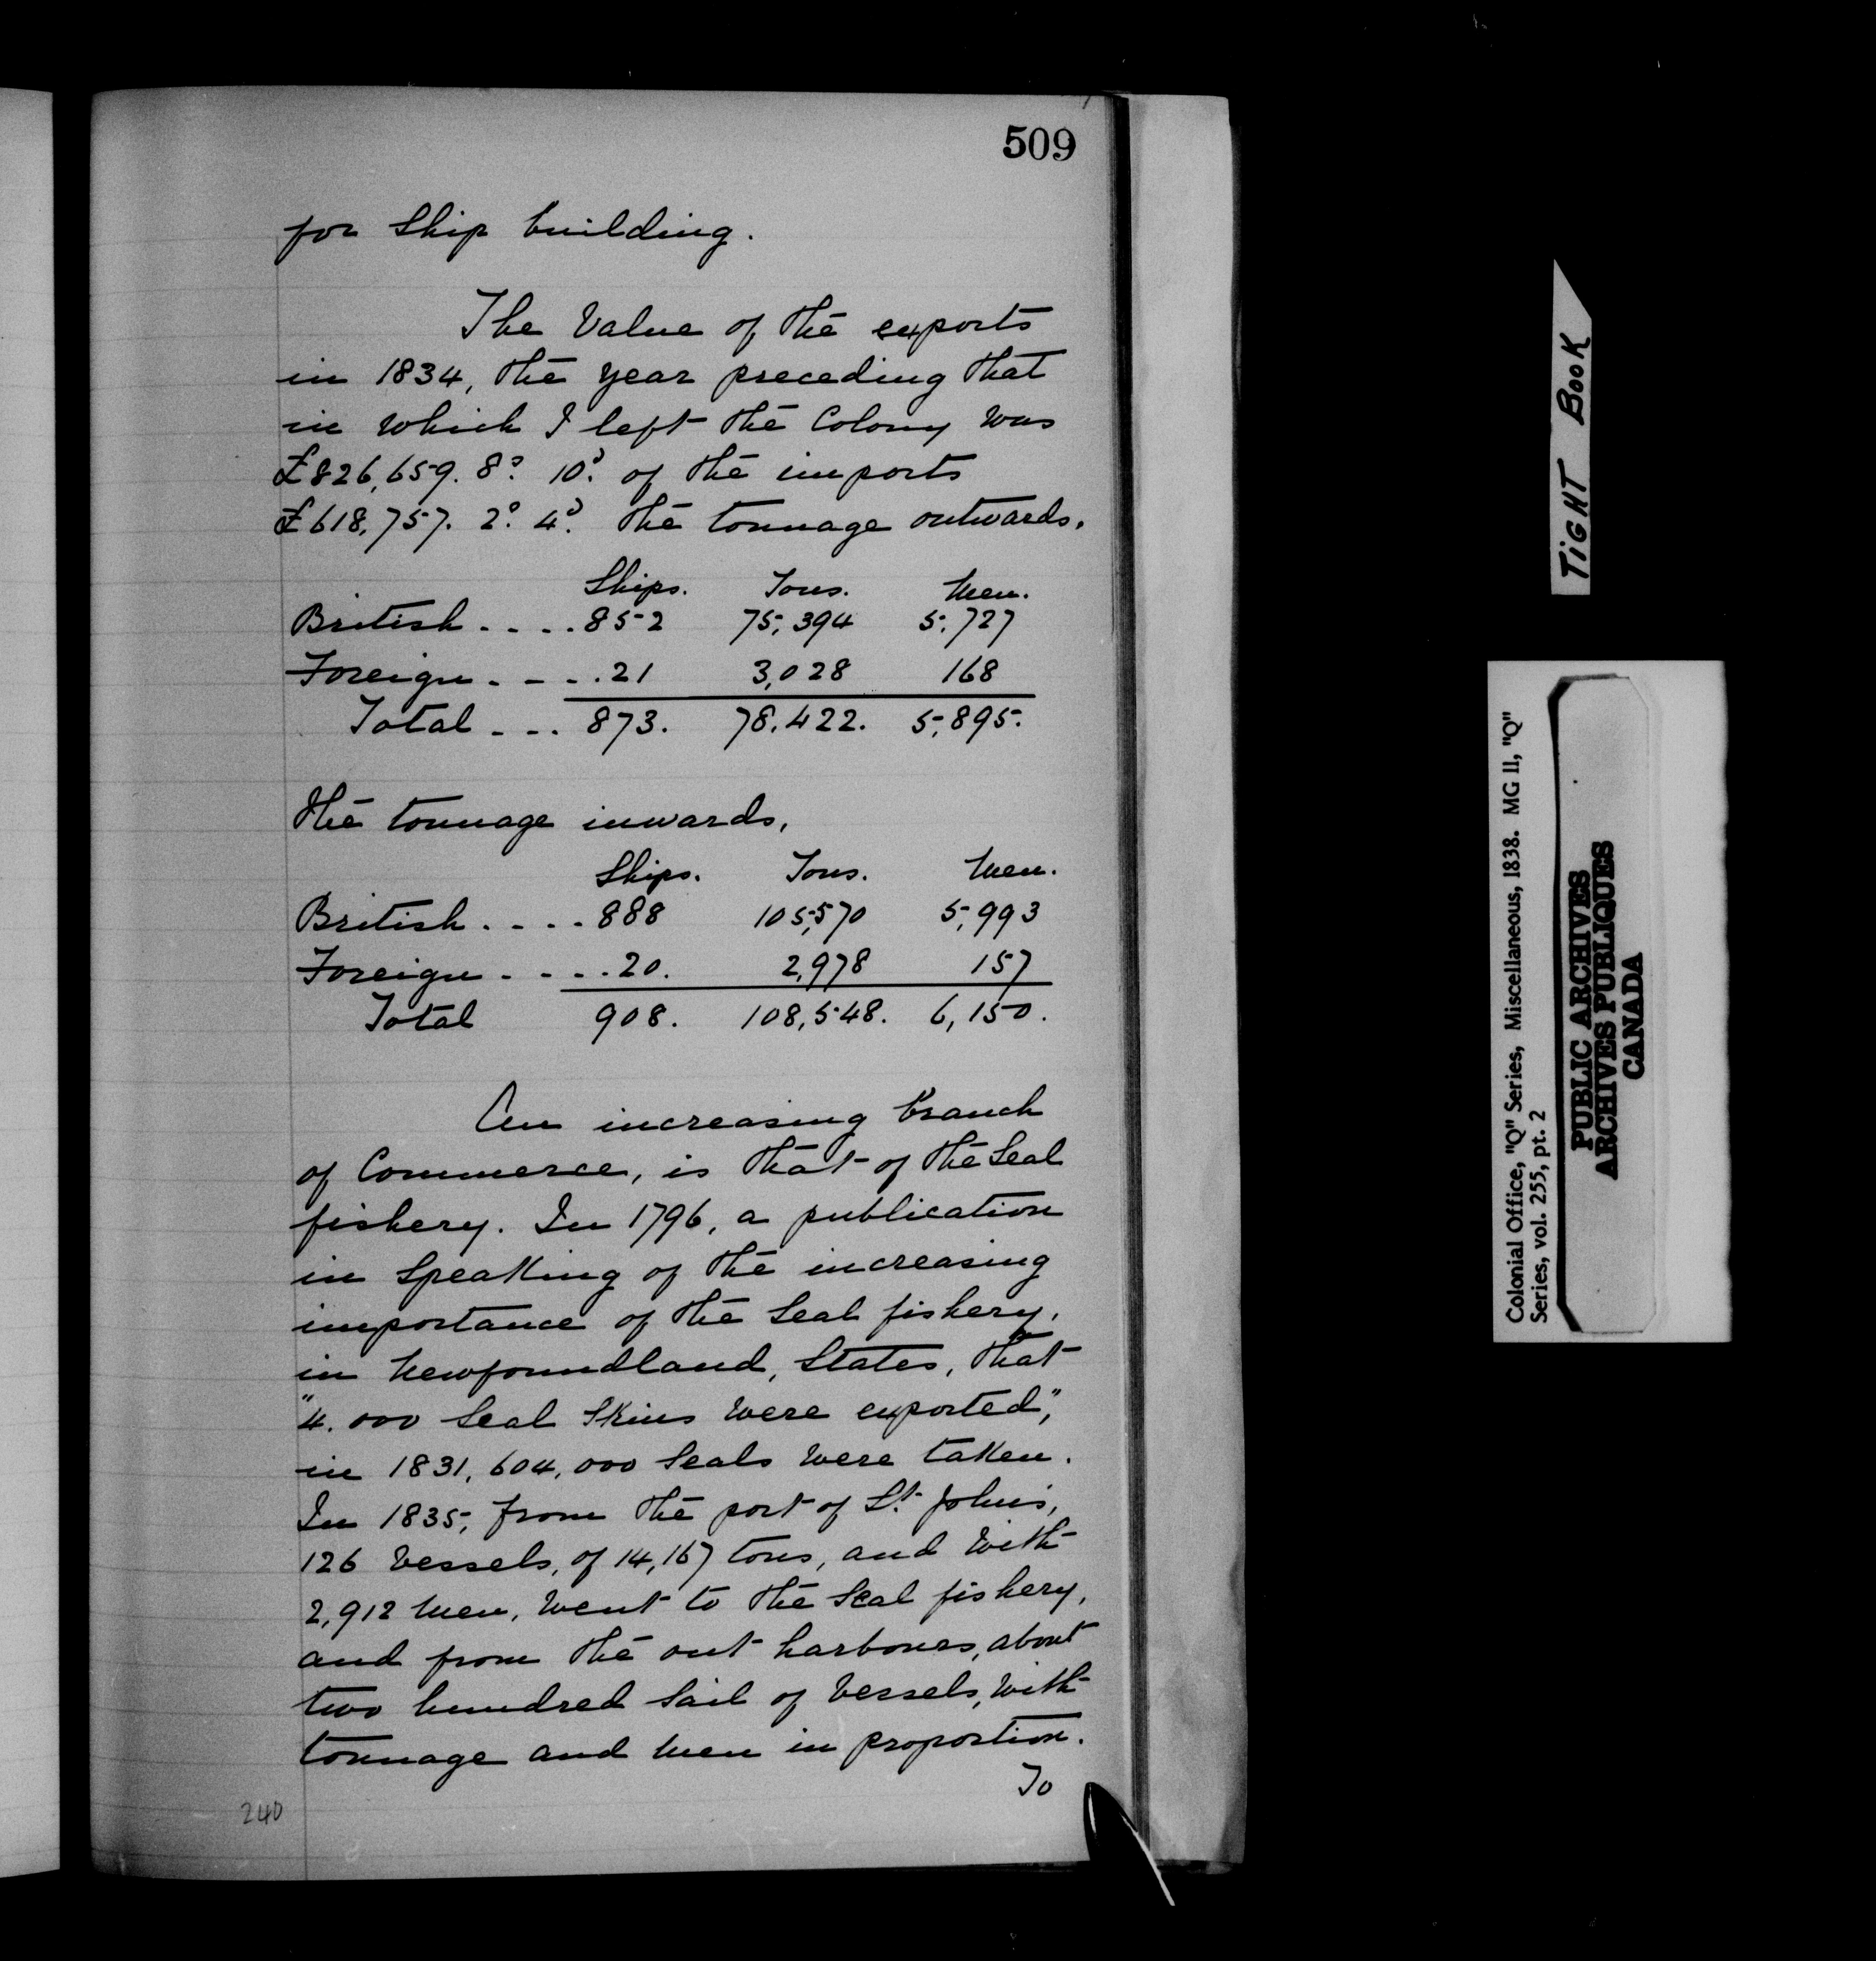 509
for Ship building.
The Value of the exports
in 1834, the year preceding that
in which I left the Colony was
£826,659. 8s. 10d. of the imports
£618,757. 2s. 4d. the tonnage outwards.
Ships. Tons. Men.
British....852 75,394 5,727
Foreign....21 3,028 168
Total... 873. 78,422. 5,895.
the tonnage inwards,
Ships. Tons. Men.
British....888 105,570 5,993
Foreign....20. 2,978 157
Total 908. 108,548. 6,150.
An increasing branch
of Commerce, is that of the Seal
fishery. In 1796, a publication
in Speaking of the increasing
importance of the Seal fishery,
in Newfoundland, States, that
"4.000 Seal Skins were exported,"
in 1831, 604,000 Seals were taken.
In 1835, from the port of St. John's,
126 Vessels, of 14,167 tons, and with
2,912 Men, went to the Seal fishery,
and from the out harbours, about
two hundred Sail of Vessels, with
tonnage and Men in proportion.
To
240
TIGHT BOOK
Colonial Office, "Q" Series, Miscellaneous, 1838. MG 11, "Q"
Series, vol. 255, pt. 2
PUBLIC ARCHIVES
ARCHIVES PUBLIQUES
CANADA